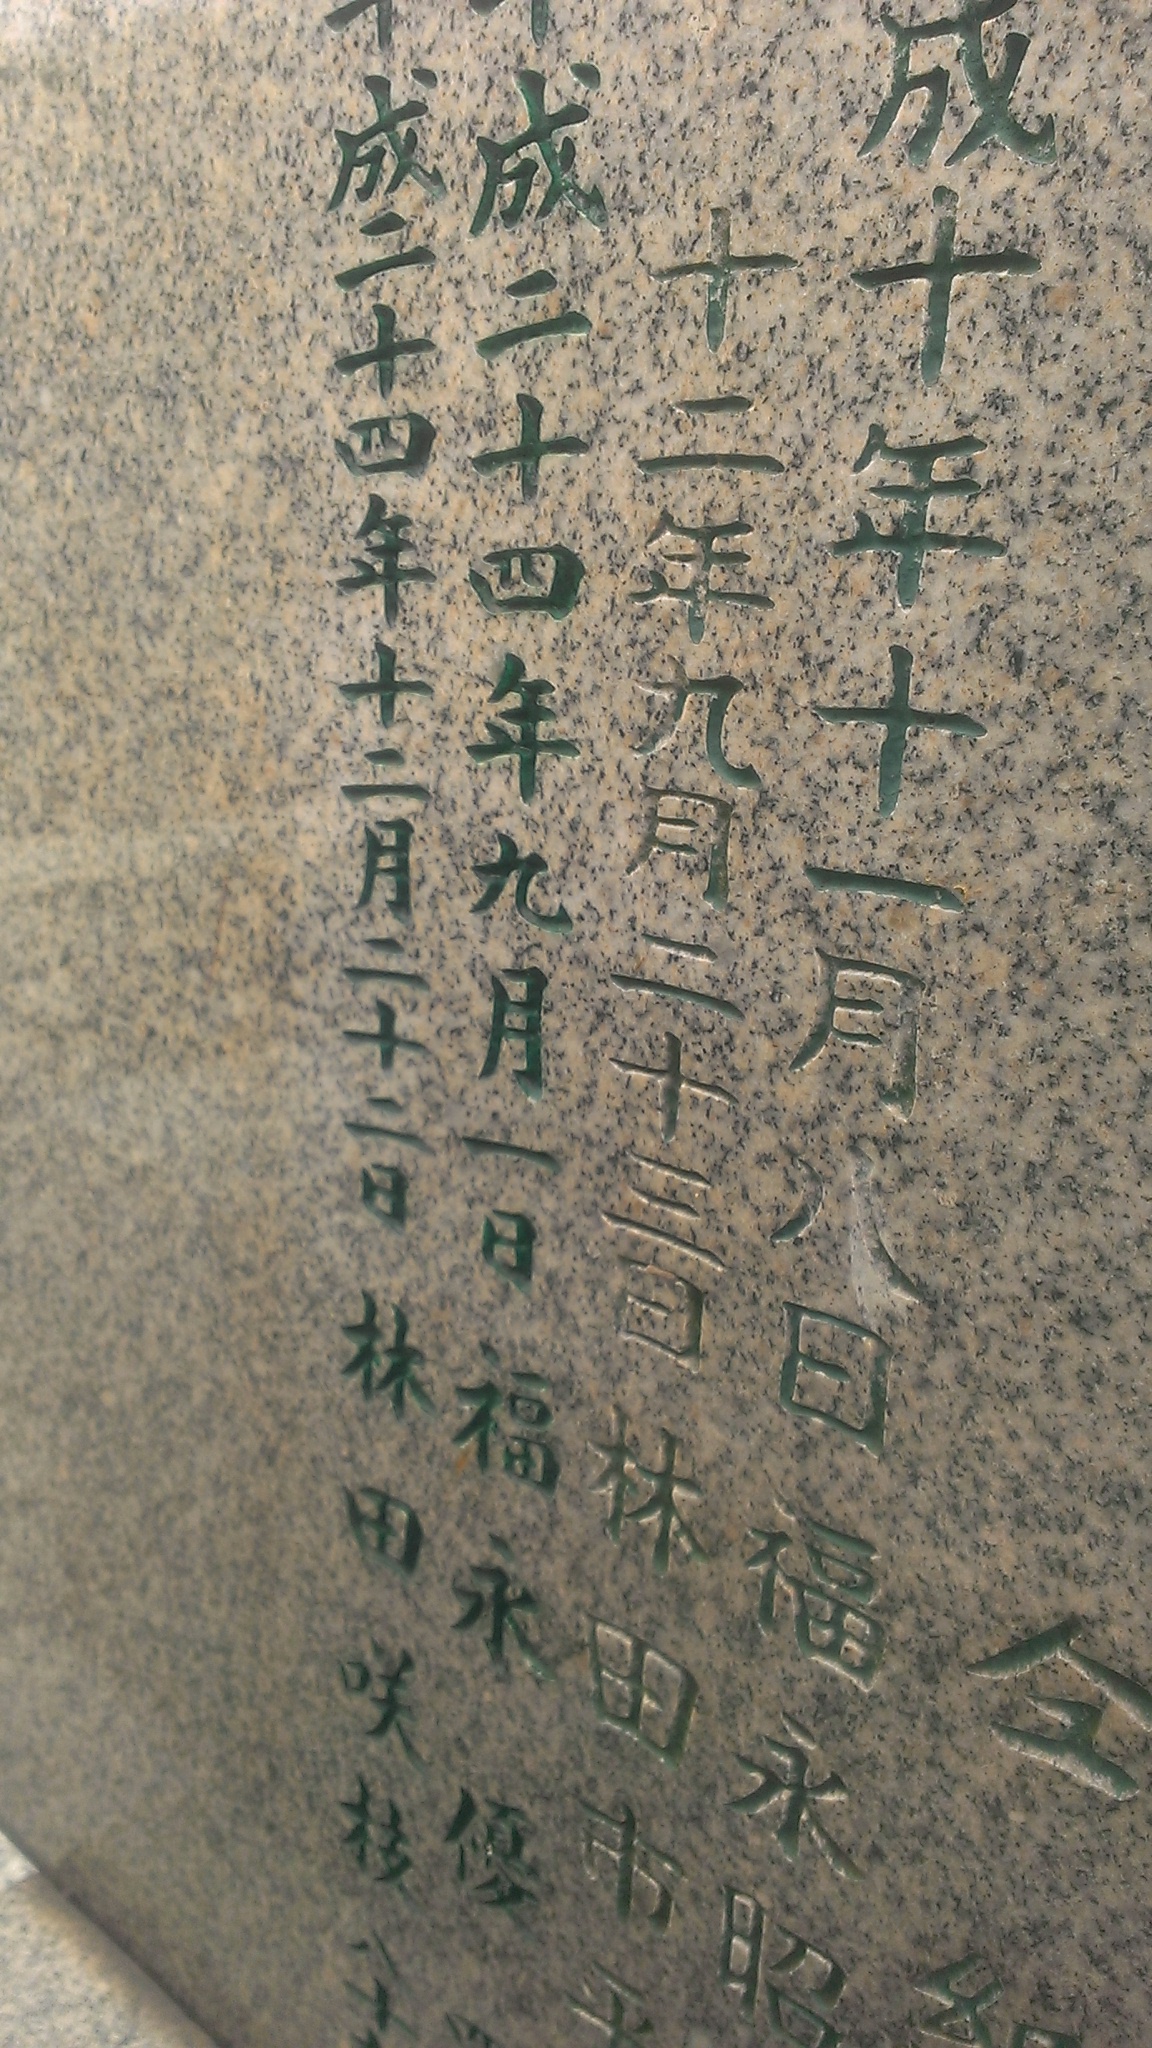 仝
成十年十一月八日 福永昭
十二年九月二十三日 林田市
平成二十四年九月一日 福永優
平成二十四年十二月二十二日 林田咲枝